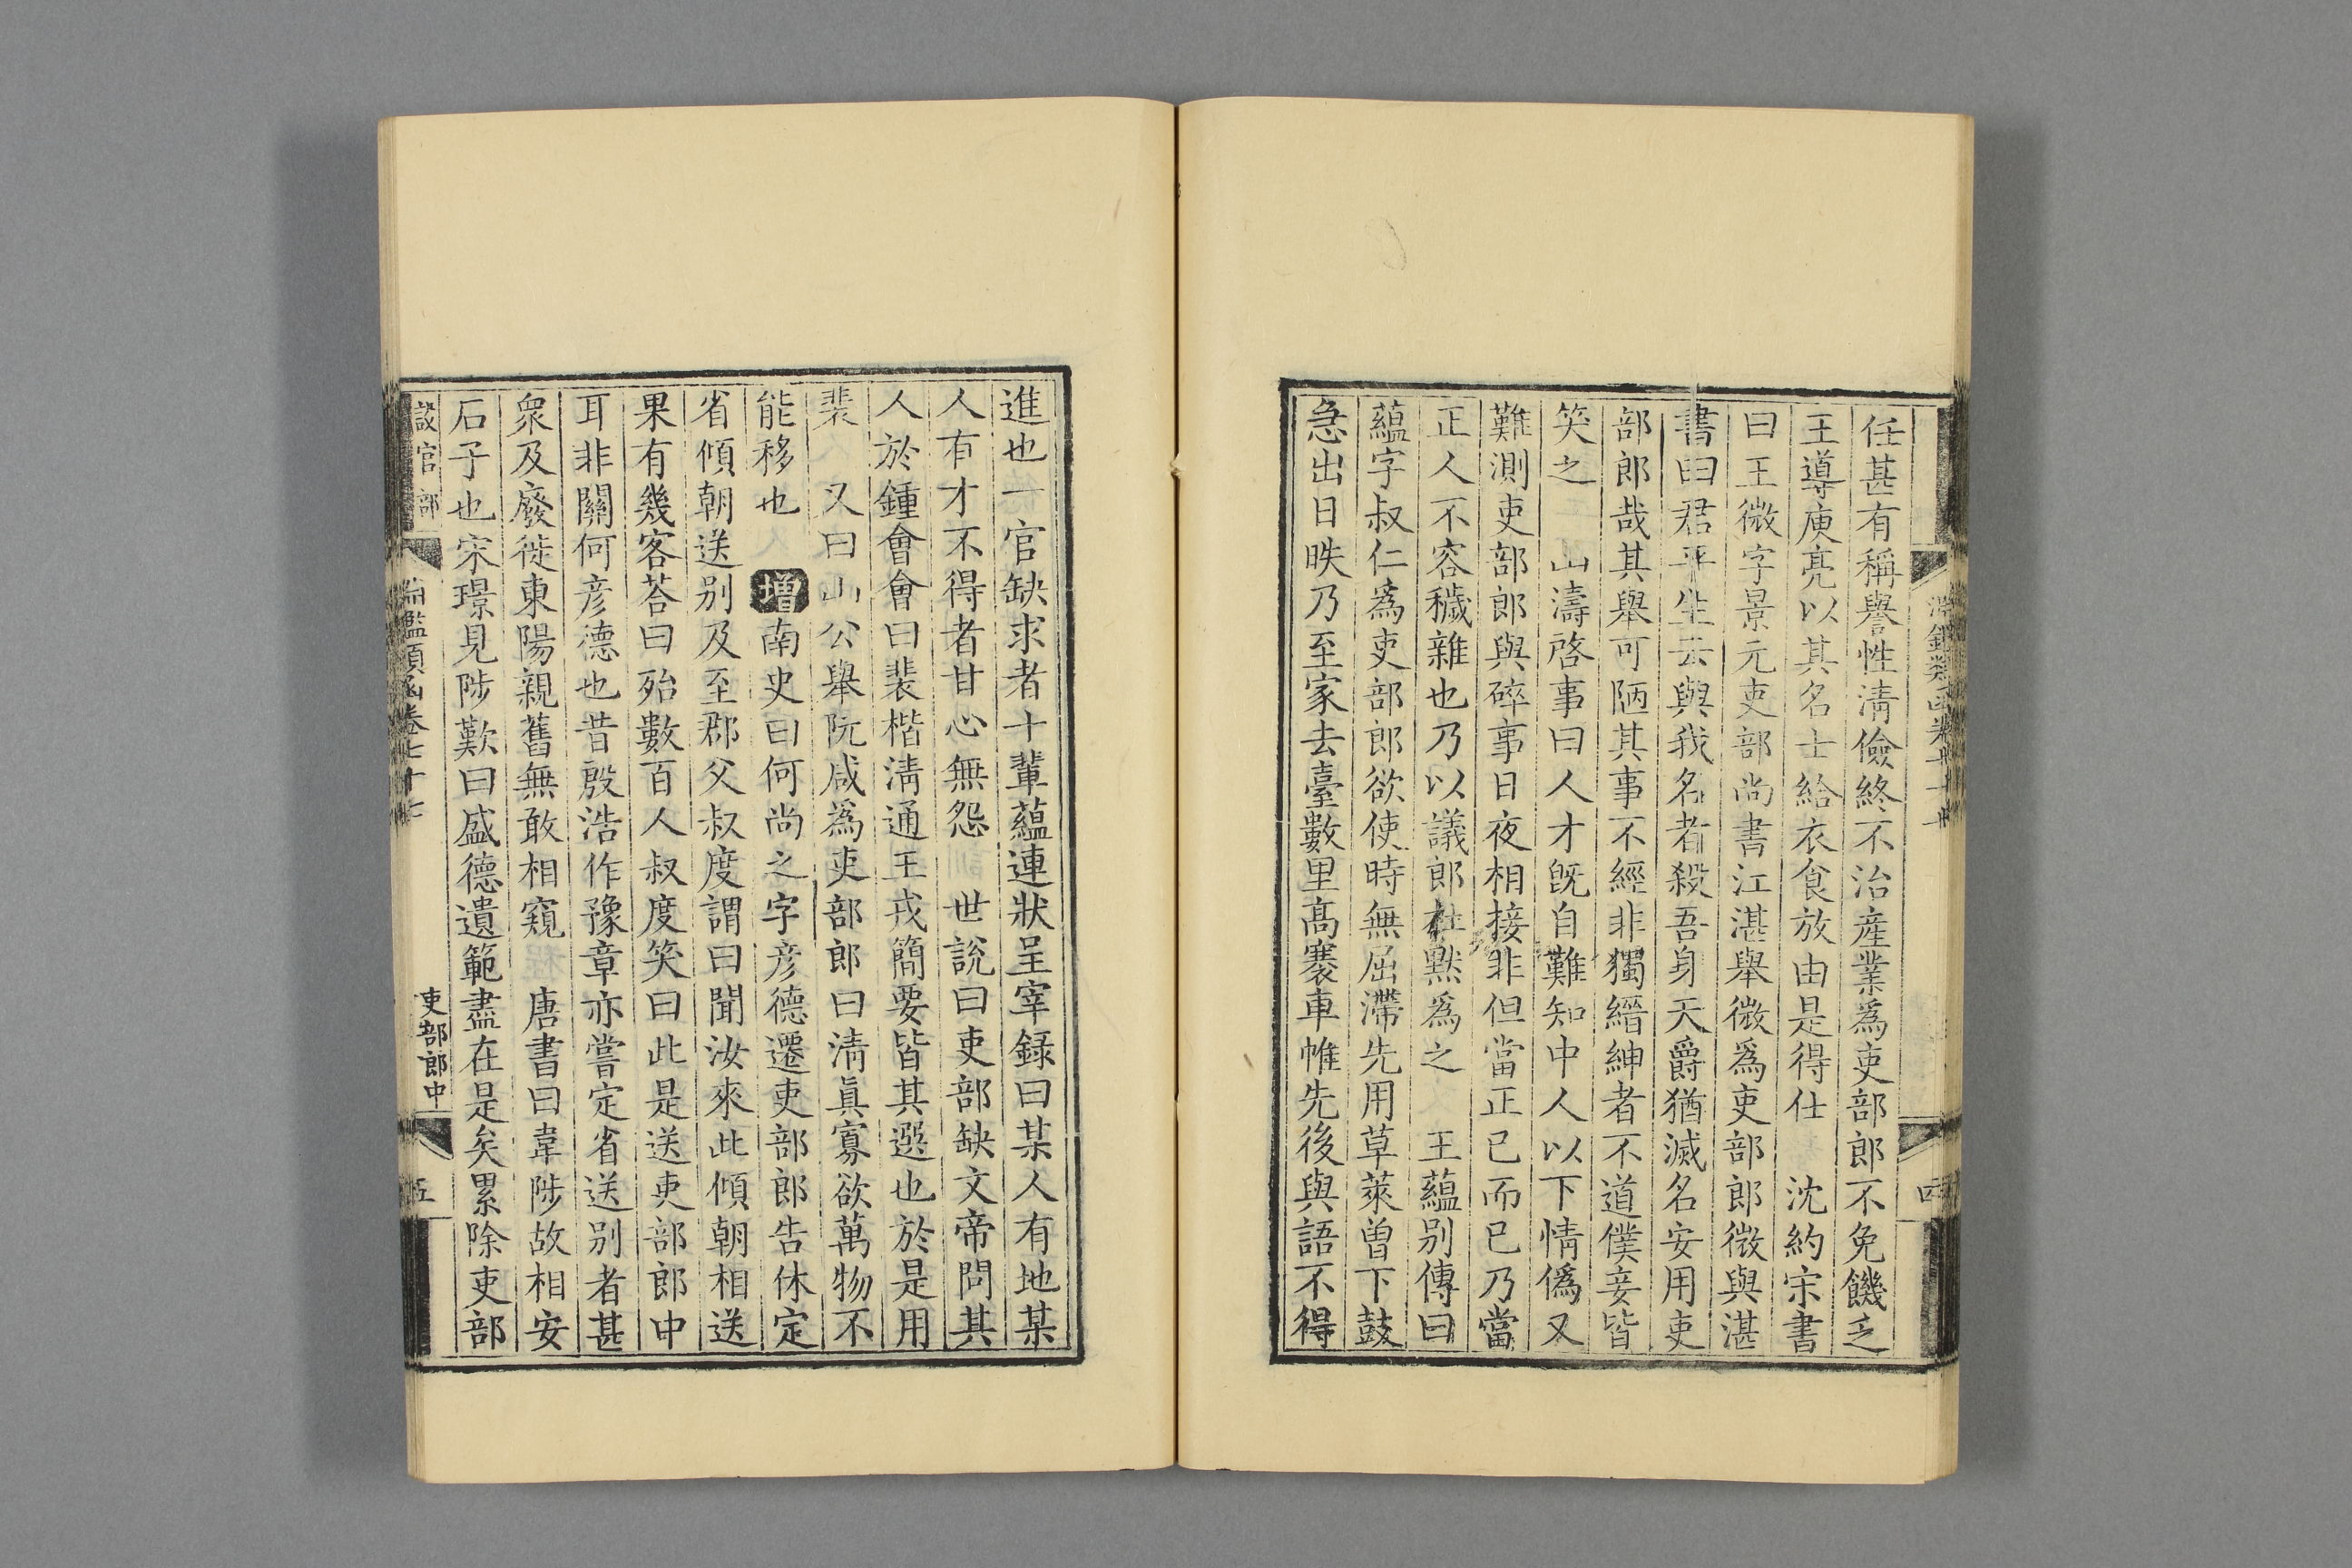 任甚有稱譽性清儉終不治產業爲吏部郎不免饑乏
王導庾亮以其名士給衣食放由是得仕　沈約宋書
曰王微字景元吏部尚書江湛舉微爲吏部郎微與湛
書曰君平生云與我名者殺吾身天爵猶滅名安用吏
部郎哉其舉可陋其事不經非獨縉紳者不道僕妾皆
笑之　山濤啓事曰人才旣自難知中人以下情僞又
難測吏部郎與碎事日夜相接非但當正已而已乃當
正人不容穢雜也乃以議郎杜黙爲之　王蘊别傳曰
蘊字叔仁爲吏部郎欲使時無屈滯先用草萊曽下鼓
急出日昳乃至家去臺數里高褰車帷先後與語不得
進也一官缺求者十輩蘊連狀呈宰録曰某人有地某
人有才不得者甘心無怨　世說曰吏部缺文帝問其
人於鍾會會曰裴楷淸通王戎簡要皆其選也於是用
裴　又曰山公舉阮咸爲吏部郎曰淸眞寡欲萬物不
能移也　增南史曰何尚之字彦德遷吏部郎告休定
省傾朝送别及至郡父叔度謂曰聞汝來此傾朝相送
果有幾客荅曰殆數百人叔度笑曰此是送吏部郎中
耳非關何彦德也昔殷浩作豫章亦嘗定省送别者甚
衆及廢徙東陽親舊無敢相窺　唐書曰韋陟故相安
石子也宋璟見陟歎曰盛德遺範盡在是矣累除吏部
設官部
淵鑑類函卷七十七
吏部郎中
五